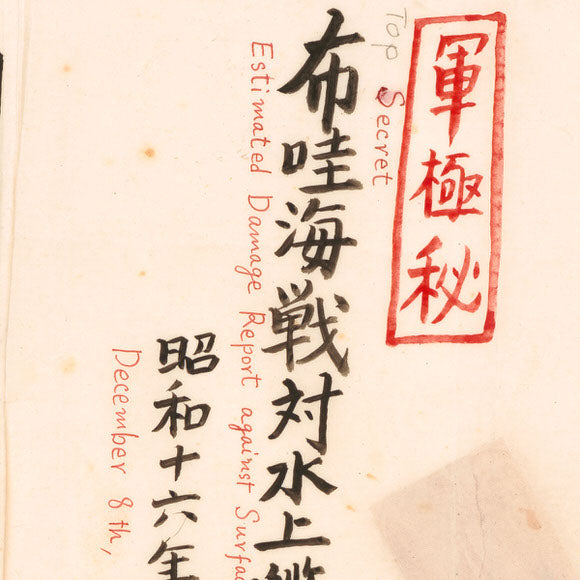 軍極秘
Top Secret
布哇海戦対水上
Estimated Damage Report against
昭和十六年
December 8th,